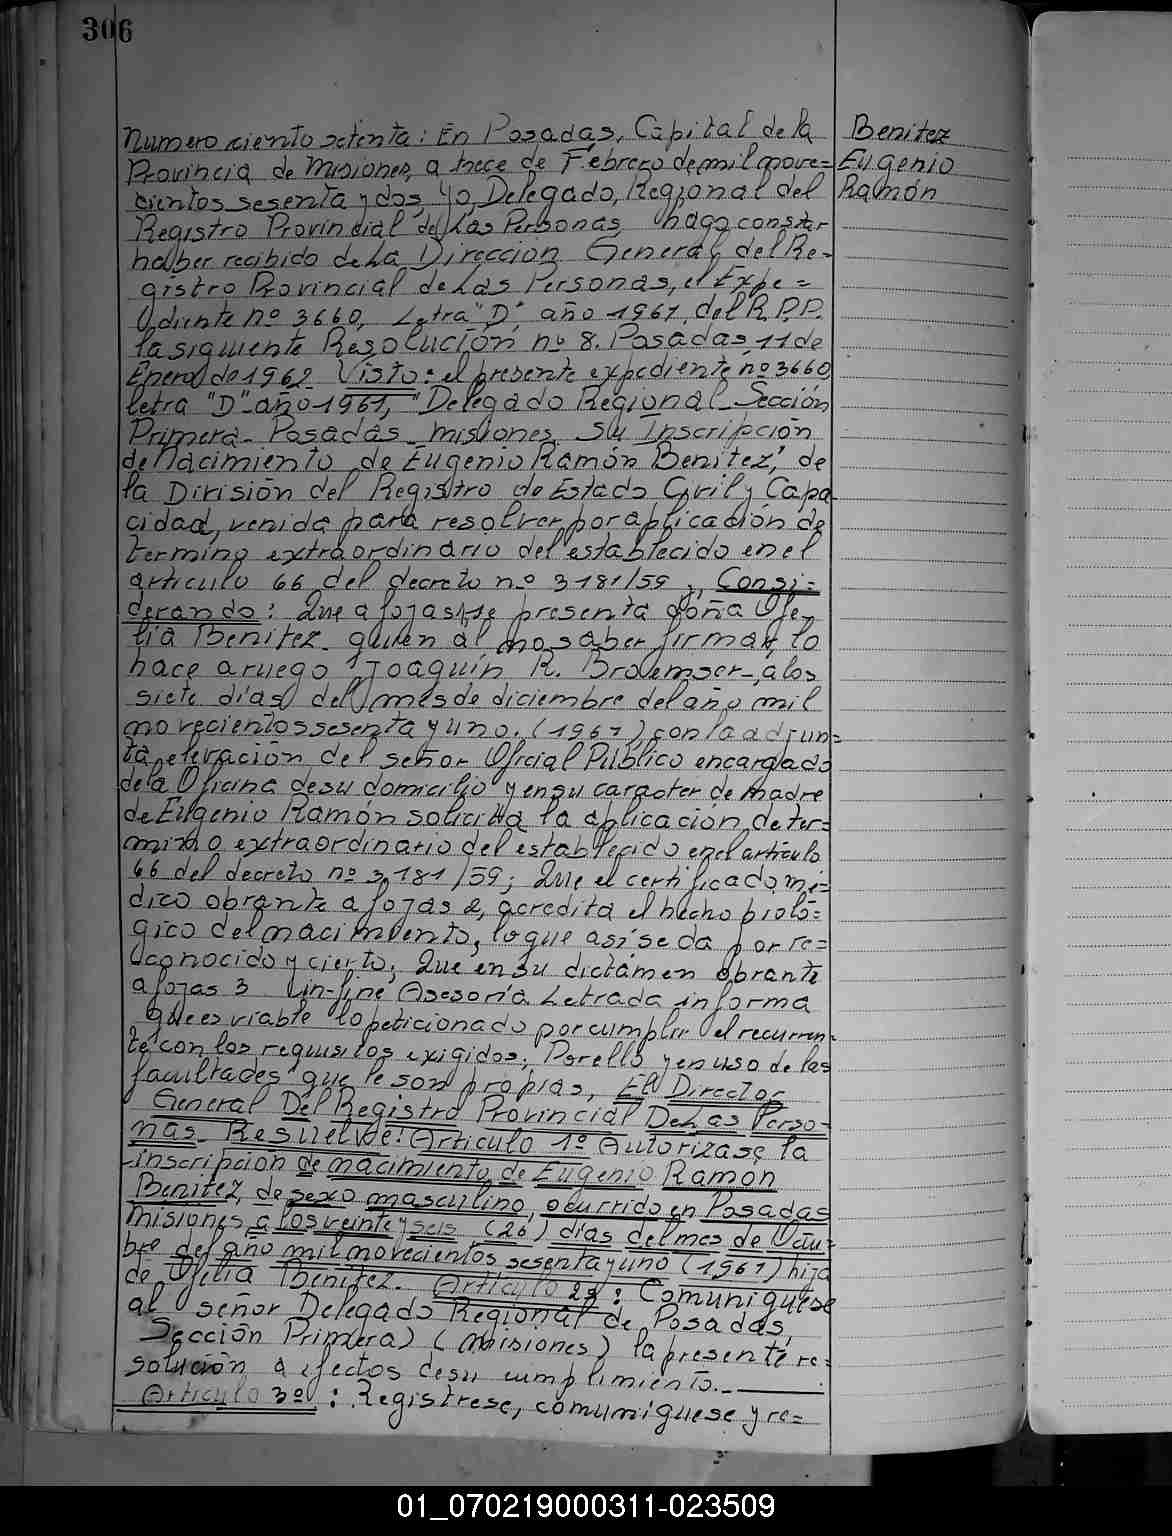 306
Benitez
Eugenio
Ramón
Numero ciento setenta: En Posadas, Capital de la
Provincia de Misiones, a trece de Febrero de mil nove=
cientos sesenta y dos, yo, Delegado, Regional del
Registro Provincial de las Personas, hago constar
haber recibido de La Dirección General del Re-
gistro Provincial de Las Personas, el Expe=
diente nº 3660, Letra "D", año 1961 del R.P.P.
la siguiente Resolución nº 8. Posadas, 11 de
Enero de 1962. Visto: el presente expediente nº 3660
letra "D" año 1961, "Delegado Regional Sección
Primera- Posadas- misiones su Inscripción
de Nacimiento de Eugenio Ramón Benitez", de
la División del Registro de Estado Civil y Capa
cidad, venida para resolver por aplicación de
termino extraordinario del establecido en el
articulo 66 del decreto nº 3181/59; Consi=
derando: Que a fojas 1 se presenta doña Ofe-
lia Benitez- quien al no saber firmar, lo
hace a ruego Joaquín R. Broemser-, a los
siete días del mes de diciembre del año mil
novecientos sesenta y uno. (1961) con la adjun=
ta elevación del señor Oficial Público encargado
de la Oficina de su domicilio y en su caracter de madre
de Eugenio Ramón solicita la aplicación de ter=
mino extraordinario del establecido en el artículo
66 del decreto nº 3181/59; Que el certificado mé=
dico obrante a fojas 2, acredita el hecho bioló=
gico del nacimiento, lo que así se da por re=
conocido y cierto; Que en su dictámen obrante
a fojas 3 in-fine Asesoría Letrada informa
que es viable lo peticionado por cumplir el recurren=
te con los requisitos exigidos; Por ello y en uso de las
facultades que le son propias, El Director
General Del Registro Provincial De Las Perso-
nas- Resuelve: Artículo 1º Autorizase la
inscripción de nacimiento de Eugenio Ramón
Benitez, de sexo masculino, ocurrido en Posadas
Misiones a los veinte y seis (26) días del mes de Octu=
bre del año mil novecientos sesenta y uno (1961) hijo
de Ofelia Benitez. Artículo 2º: Comuníquese
al señor Delegado Regional de Posadas,
Sección Primera) (Misiones) la presente re=
solución a efectos de su cumplimiento.-
Artículo 3º: Registrese, comuníquese y re=
01_070219000311-023509